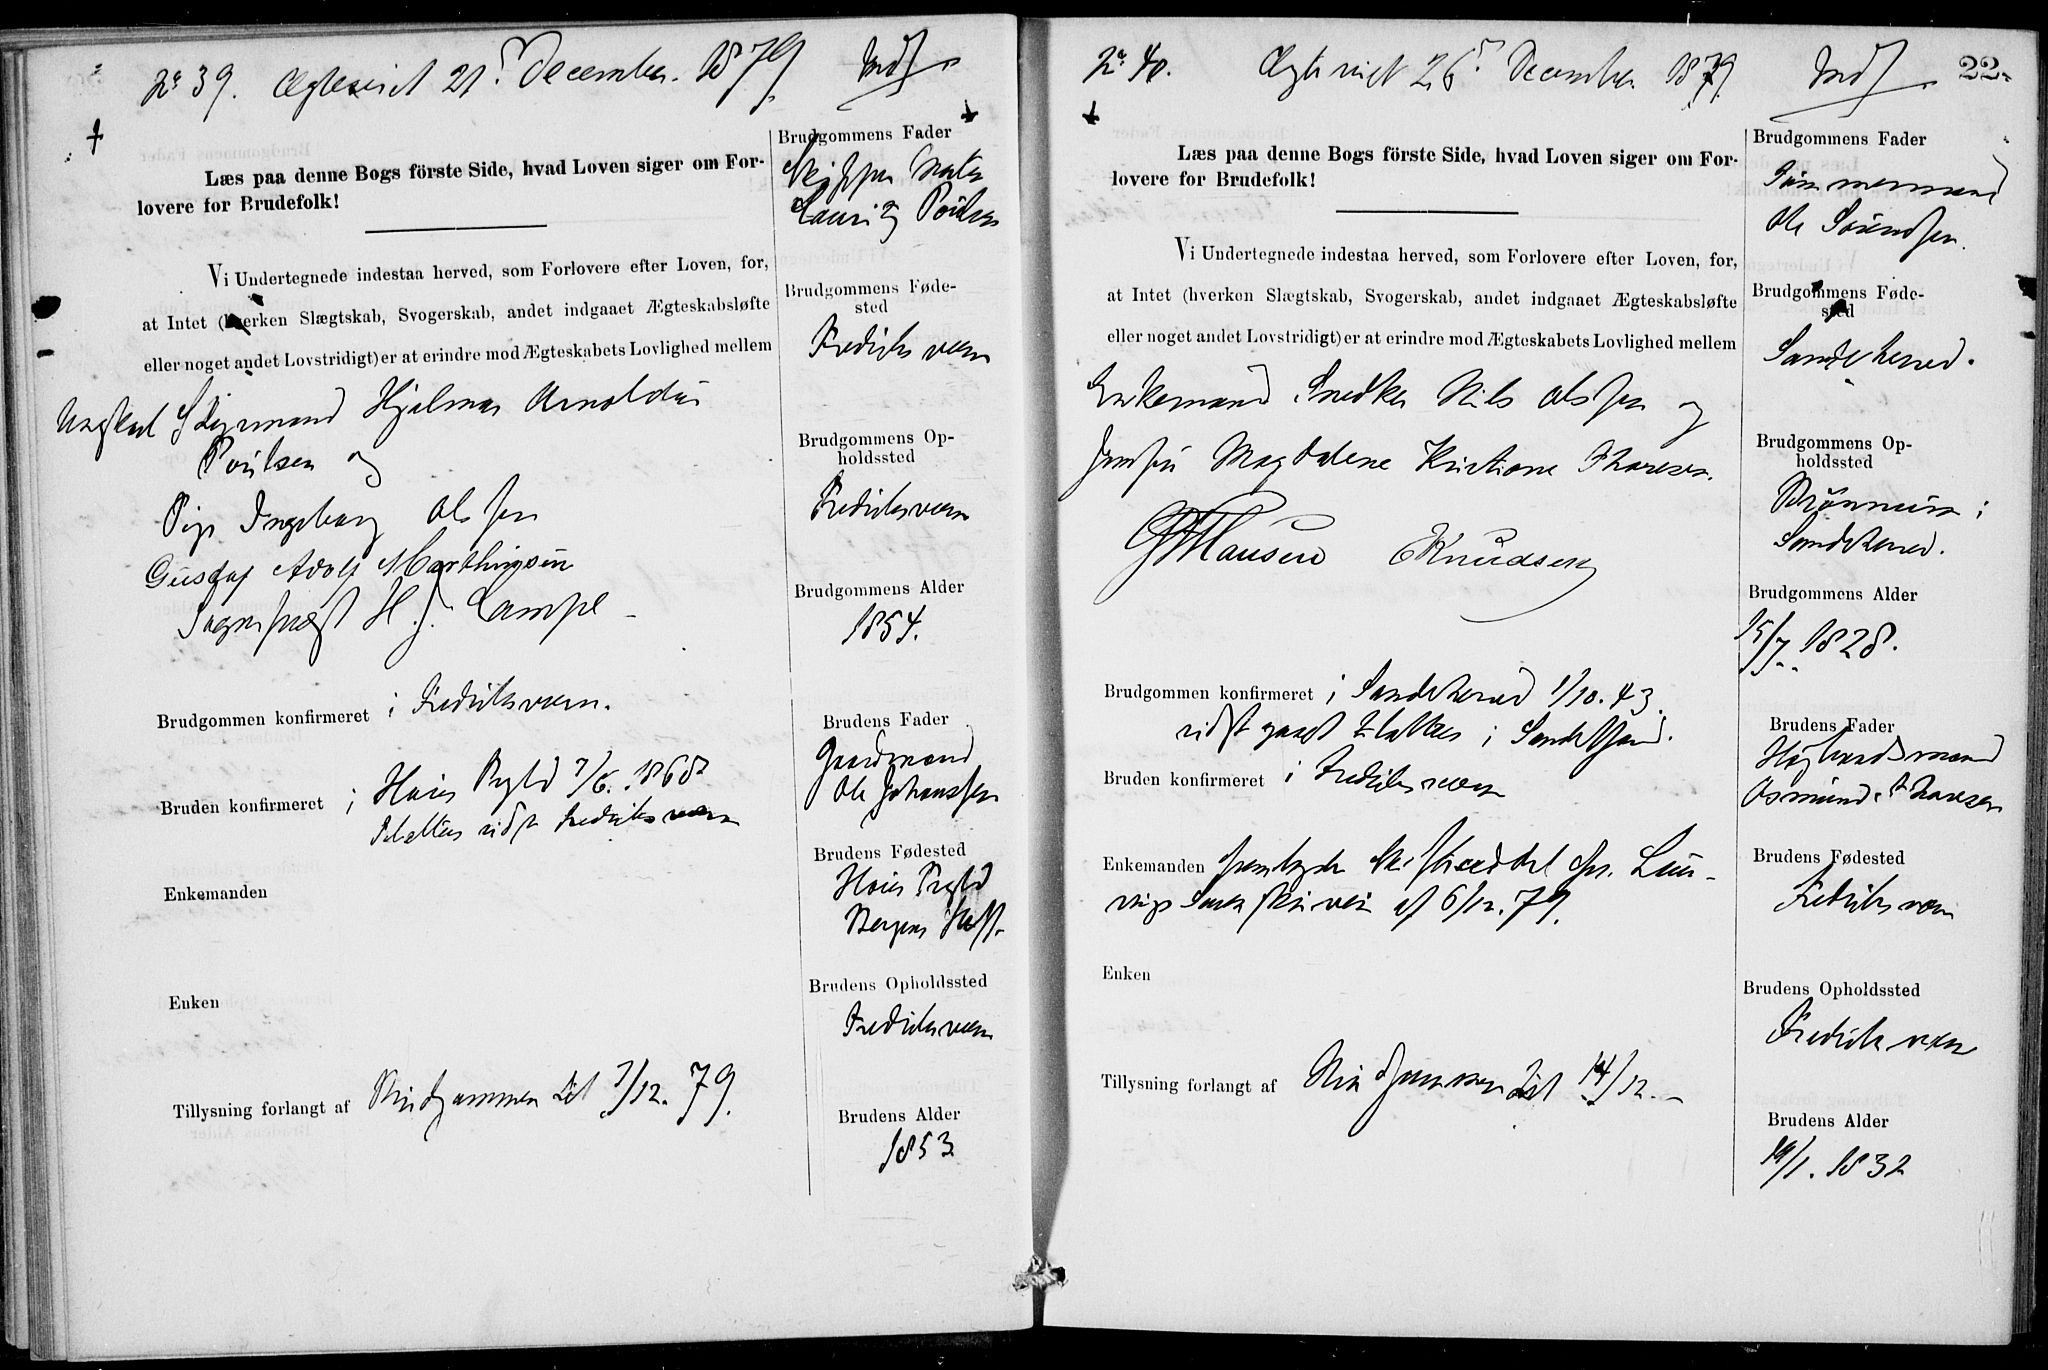 No 39. Ægteviet 21. December. 1879 Indf.
Læs paa denne Bogs förste Side, hvad Loven siger om For-
lovere for Brudefolk!
Vi Undertegnede indestaa herved, som Forlovere efter Loven, for,
at Intet (hverken Slægtskab, Svogerskab, andet indgaaet Ægteskabsløfte
eller noget andet Lovstridigt) er at erindre mod Ægteskabets Lovlighed mellem
Ungkarl Styrmand Hjalmar Arnoldus
Poulsen og
Pige Ingeborg Olsen
Gustaf Adolf Marthinsen
Sogneprest H. J. Lampe
Brudgommen konfirmeret i Fredriksværn.
Bruden konfirmeret i Haus Prgld 7/6. 1868
Enkemanden
Enken
Tillysning forlangt af Brudgommen d. 7/12. 79.
Brudgommens Fader
Skipper
Lauritz Poulsen
Brudgommens Føde-
sted
Fredriksværn
Brudgommens Op-
holdssted
Fredriksværn
Brudgommens Alder
1854.
Brudens Fader
Gaardmand
Ole Johanssen
Brudens Fødested
Haus Prgld
Bergens Stift.
Brudens Opholdssted
Fredriksværn
Brudens Alder
1853
No 40. Ægteviet 26. December 1879. Indf. 22.
Læs paa denne Bogs förste Side, hvad Loven siger om For-
lovere for Brudefolk!
Vi Undertegnede indestaa herved, som Forlovere efter Loven, for,
at Intet (hverken Slægtskab, Svogerskab, andet indgaaet Ægteskabsløfte
eller noget andet Lovstridigt) er at erindre mod Ægteskabets Lovlighed mellem
Enkemand Snedker Nils Olsen og
Jomfru Magdalene Kristiane Thoresen.
Hansen EKnudsen
Brudgommen konfirmeret i Sandeherred 1/10. 43.
sidst gaaet til alters i Sandefjord.
Bruden konfirmeret i Fredriksværn
Enkemanden frembyder Skifteseddel fra Laur-
vigs Sorenskriveri af 6/12. 79.
Enken
Tillysning forlangt af Brudgommen d. 14/12.
Brudgommens Fader
Tømmermand
Ole Sörensen.
Brudgommens Føde-
sted
Sandeherred.
Brudgommens Op-
holdssted
i
Sandeherred.
Brudgommens Alder
15/7. 1828.
Brudens Fader
Osmund Thoresen
Brudens Fødested
Fredriksværn
Brudens Opholdssted
Fredriksværn
Brudens Alder
19/1. 1832